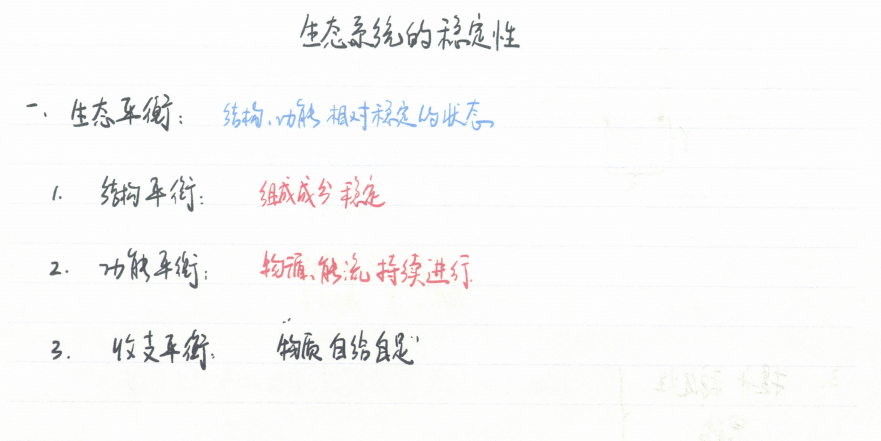 生态系统的稳定性
一. 生态平衡: 结构、功能相对稳定的状态
1. 结构平衡: 组成成分稳定
2. 功能平衡: 物循、能流持续进行
3. 收支平衡: "物质自给自足"